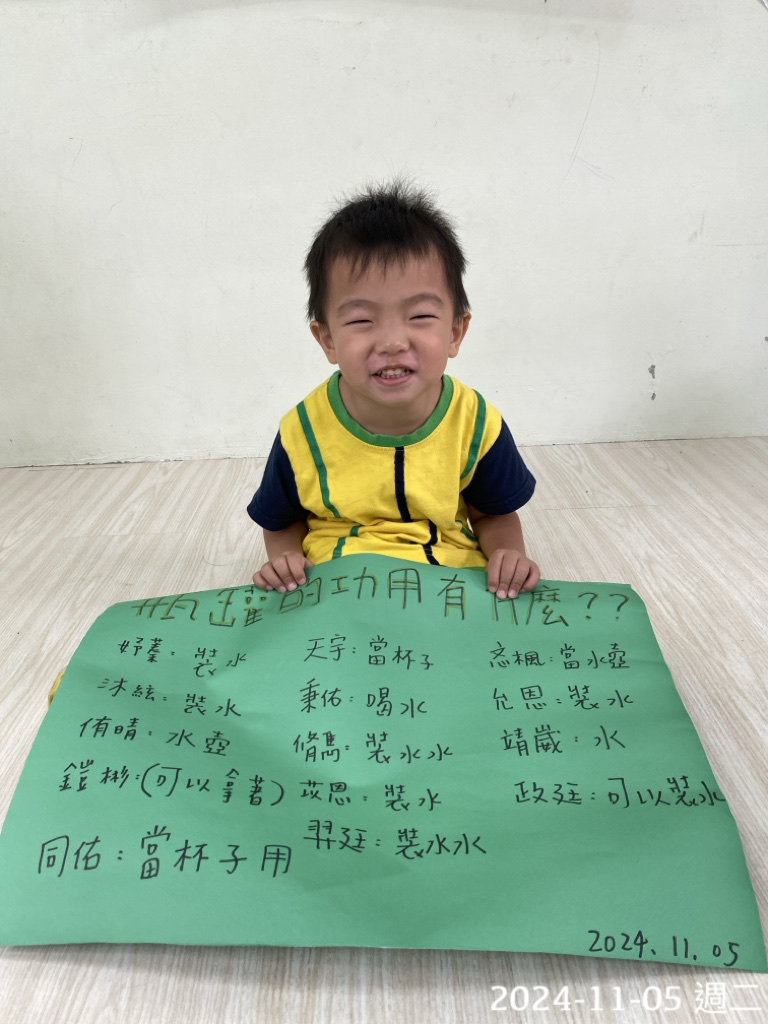 瓶罐的功用有什麼??
妤蓁:裝水 天宇:當杯子 忞楓:當水壺
沐絃:裝水 秉佑:喝水 允恩:裝水
侑晴:水壺 脩雋:裝水水 靖崴:水
鎧彬:(可以拿著) 苡恩:裝水 政廷:可以裝水
同佑:當杯子用 羿廷:裝水水
2024.11.05
2024-11-05 週二